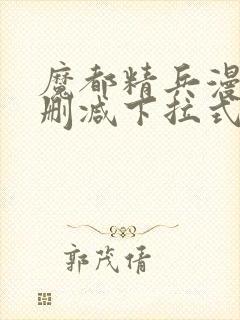 魔都精兵漫
删减下拉式
郭茂倩